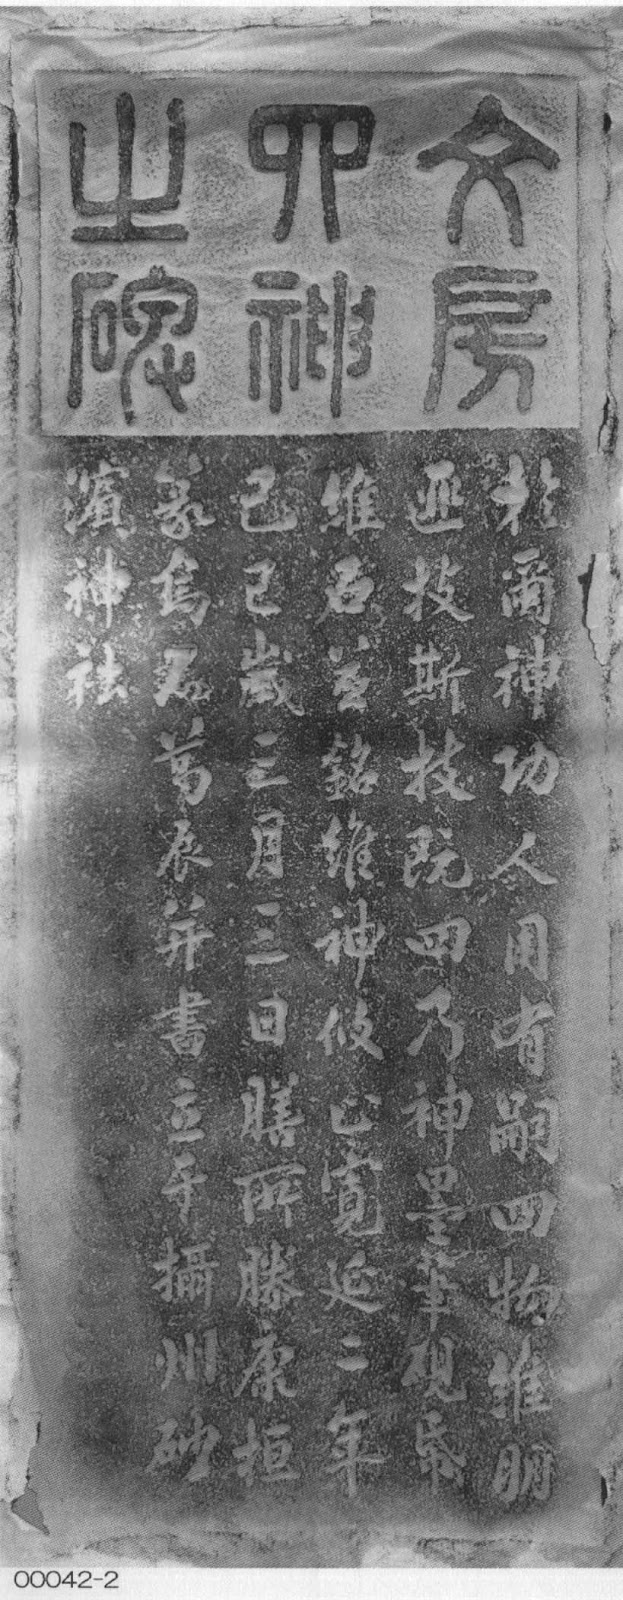 文房
四神
之碑
於爾神功人用有嗣四物維朋
匪技斯技既四乃神墨筆硯帋
維石茲銘維神攸止寛延二年
己巳歲三月三日膳所滕康桓
篆烏石葛辰并書立于攝州砂
濱神社
00042-2